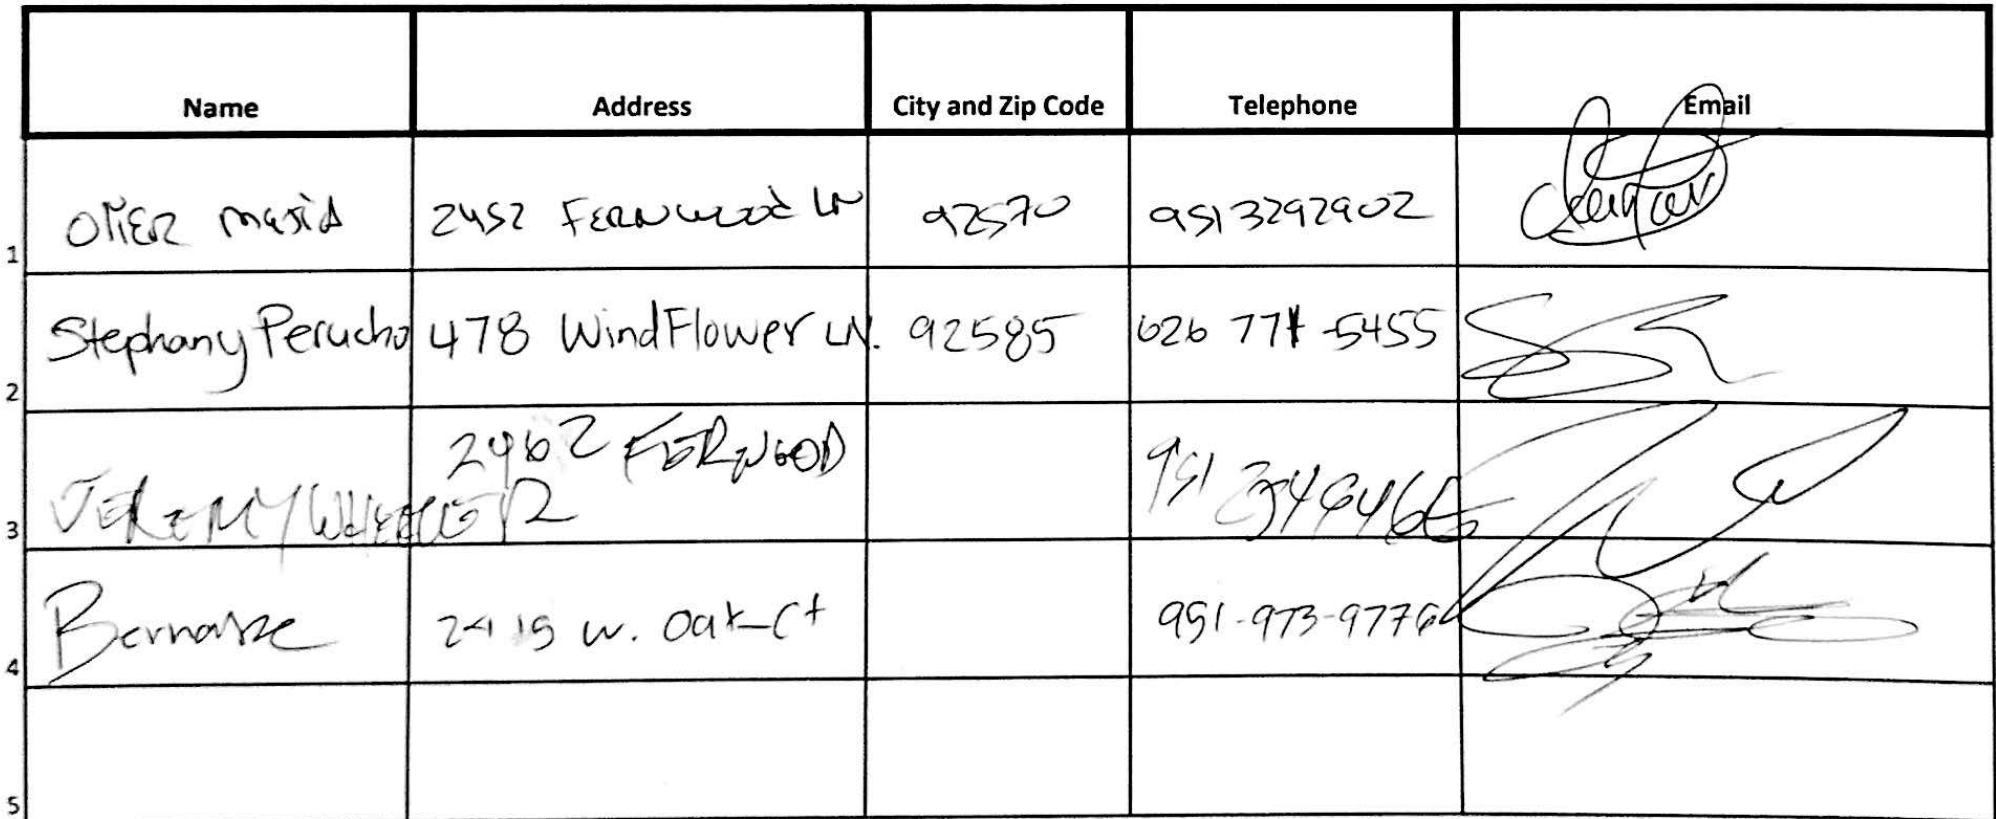 Name Address City and Zip Code Telephone Email
1 2452 FERNWOOD LN 92570 951 3292902
2 Stephany Perucho 478 WindFlower LN. 92585 626 771-5455
3 JEREMY WHEELER 2962 FERNWOOD 951
4 2415 w. Oak Ct 951-973-9776
5